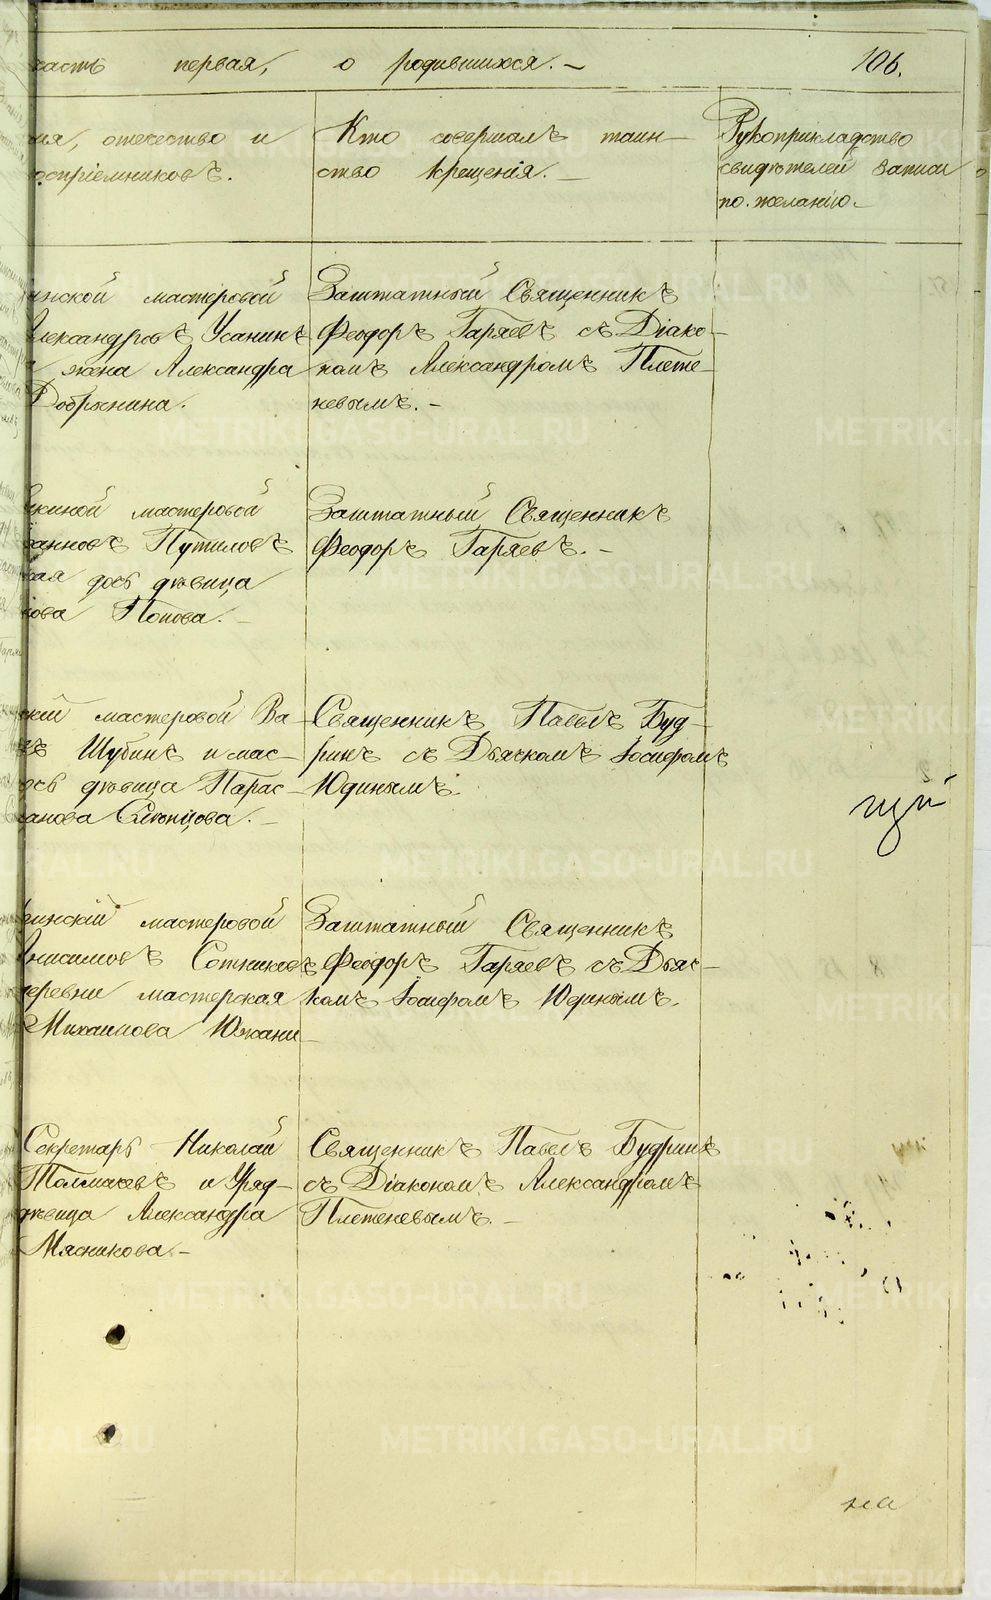 часть первая, о родившихся. 106.
ия, отечество и
оспріемниковъ.
Кто совершалъ таин-
ство крещенія.
Рукоприкладство
свидѣтелей записи
по желанію.
инской мастеровой
Александровъ Усанинъ
жена Александра
Добрынина.
Заштатный Священникъ
Феодоръ Гаряевъ съ Діако-
номъ Александромъ Плете-
невымъ.
мастеровой
Путиловъ
дочь дѣвица
кова Попова.
Заштатный Священникъ
Феодоръ Гаряевъ.
кій мастеровой Ва-
Шубинъ и мас-
дочь дѣвица Парас-
анова Слѣпцова.
Священникъ Павелъ Буд-
ринъ съ Дьячкомъ Іосифомъ
Юдинымъ.
щй
инскій мастеровой
Анисимовъ Сотниковъ
деревни мастерская
Михаилова Южани-
Заштатный Священникъ
Феодоръ Гаряевъ съ Дьяч-
комъ Іосифомъ Юдинымъ.
Секретарь Николай
Толмачевъ и Уряд-
дѣвица Александра
Мясникова.
Священникъ Павелъ Будринъ
съ Діакономъ Александромъ
Плетеневымъ.
на
METRIKI.GASO-URAL.RU